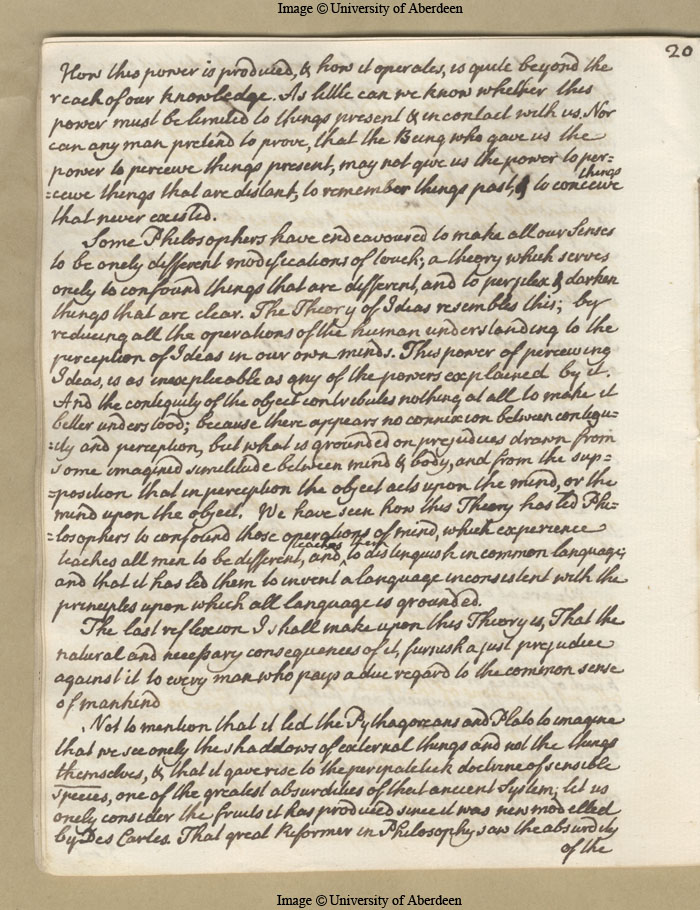 Image © University of Aberdeen
20
How this power is produced, & how it operates, is quite beyond the
reach of our knowledge. As little can we know whether this
power must be limited to things present & in contact with us. Nor
can any man pretend to prove, that the Being who gave us the
power to perceive things present, may not give us the power to per=
things
=ceive things that are distant, to remember things past, & to conceive
that never existed.
Some Philosophers have endeavoured to make all our Senses
to be onely different modifications of touch; a theory which serves
onely to confound things that are different, and to perplex & darken
things that are clear. The Theory of Ideas resembles this; by
reducing all the operations of the human understanding to the
perception of Ideas in our own minds. This power of perceiving
Ideas, is as inexplicable as any of the powers explained by it.
And the contiguity of the object contributes nothing at all to make it
better understood; because there appears no connixion between contigu=
=ity and perception, but what is grounded on prejudices drawn from
some imagined similitude between mind & body, and from the sup=
=position that in perception the object acts upon the mind, or the
mind upon the object. We have seen how this Theory has led Phi=
=losophers to confound those operations of mind, which experience
teaches them
teaches all men to be different, and to distinguish in common language;
and that it has led them to invent a language inconsistent with the
principles upon which all language is grounded.
The last reflexion I shall make upon this Theory is, That the
natural and necessary consequences of it, furnish a just prejudice
against it to every man who pays a due regard to the common sense
of mankind
Not to mention that it led the Pythagoreans and Plato to imagine
that we see onely the shaddows of external things and not the things
themselves, & that it gave rise to the peripatetick doctrine of sensible
species, one of the greatest absurdities of that ancient System; let us
onely consider the fruits it has produced since it was new modelled
by Des Cartes. That great Reformer in Philosophy saw the absurdity
of the
Image © University of Aberdeen